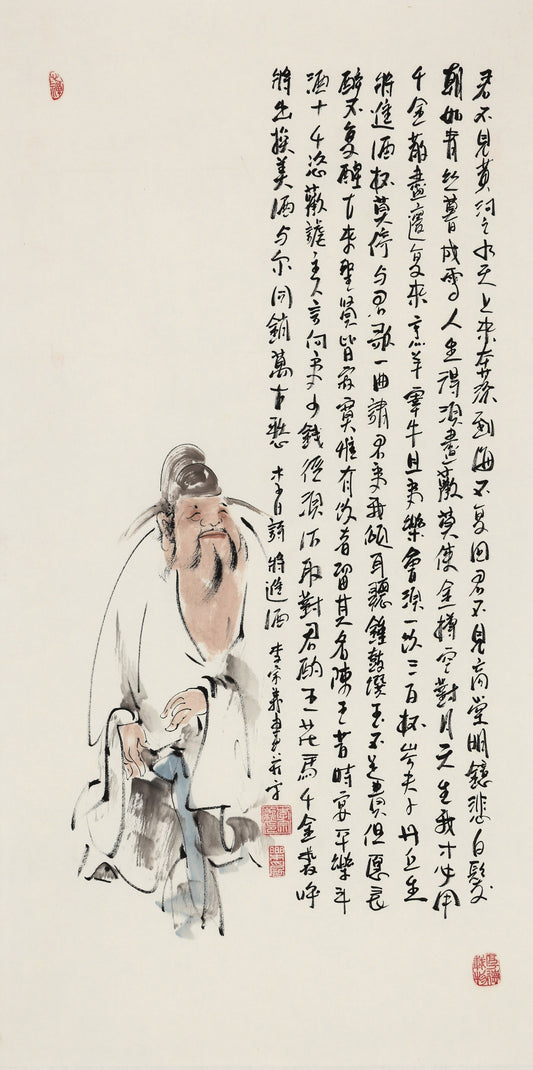 君不見黃河之水天上來奔流到海不复回君不見高堂明鏡悲白髮
朝如青丝暮成雪人生得須盡歡莫使金樽空對月天生我才必用
千金散盡還复來烹羊宰牛且為樂會須一飲三百杯岑夫子丹丘生
將進酒杯莫停与君歌一曲請君為我傾耳聽鐘鼓饌玉不足貴但愿長
醉不复醒古來聖賢皆寂寞惟有飲者留其名陳王昔時宴平樂斗
酒十千恣歡謔主人言何為少錢徑須沽取對君酌五花馬千金裘呼
將出換美酒与尔同銷萬古愁 李白詩將進酒